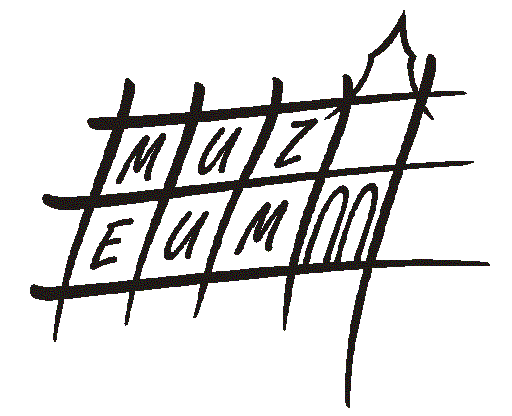 MUZ
EUM